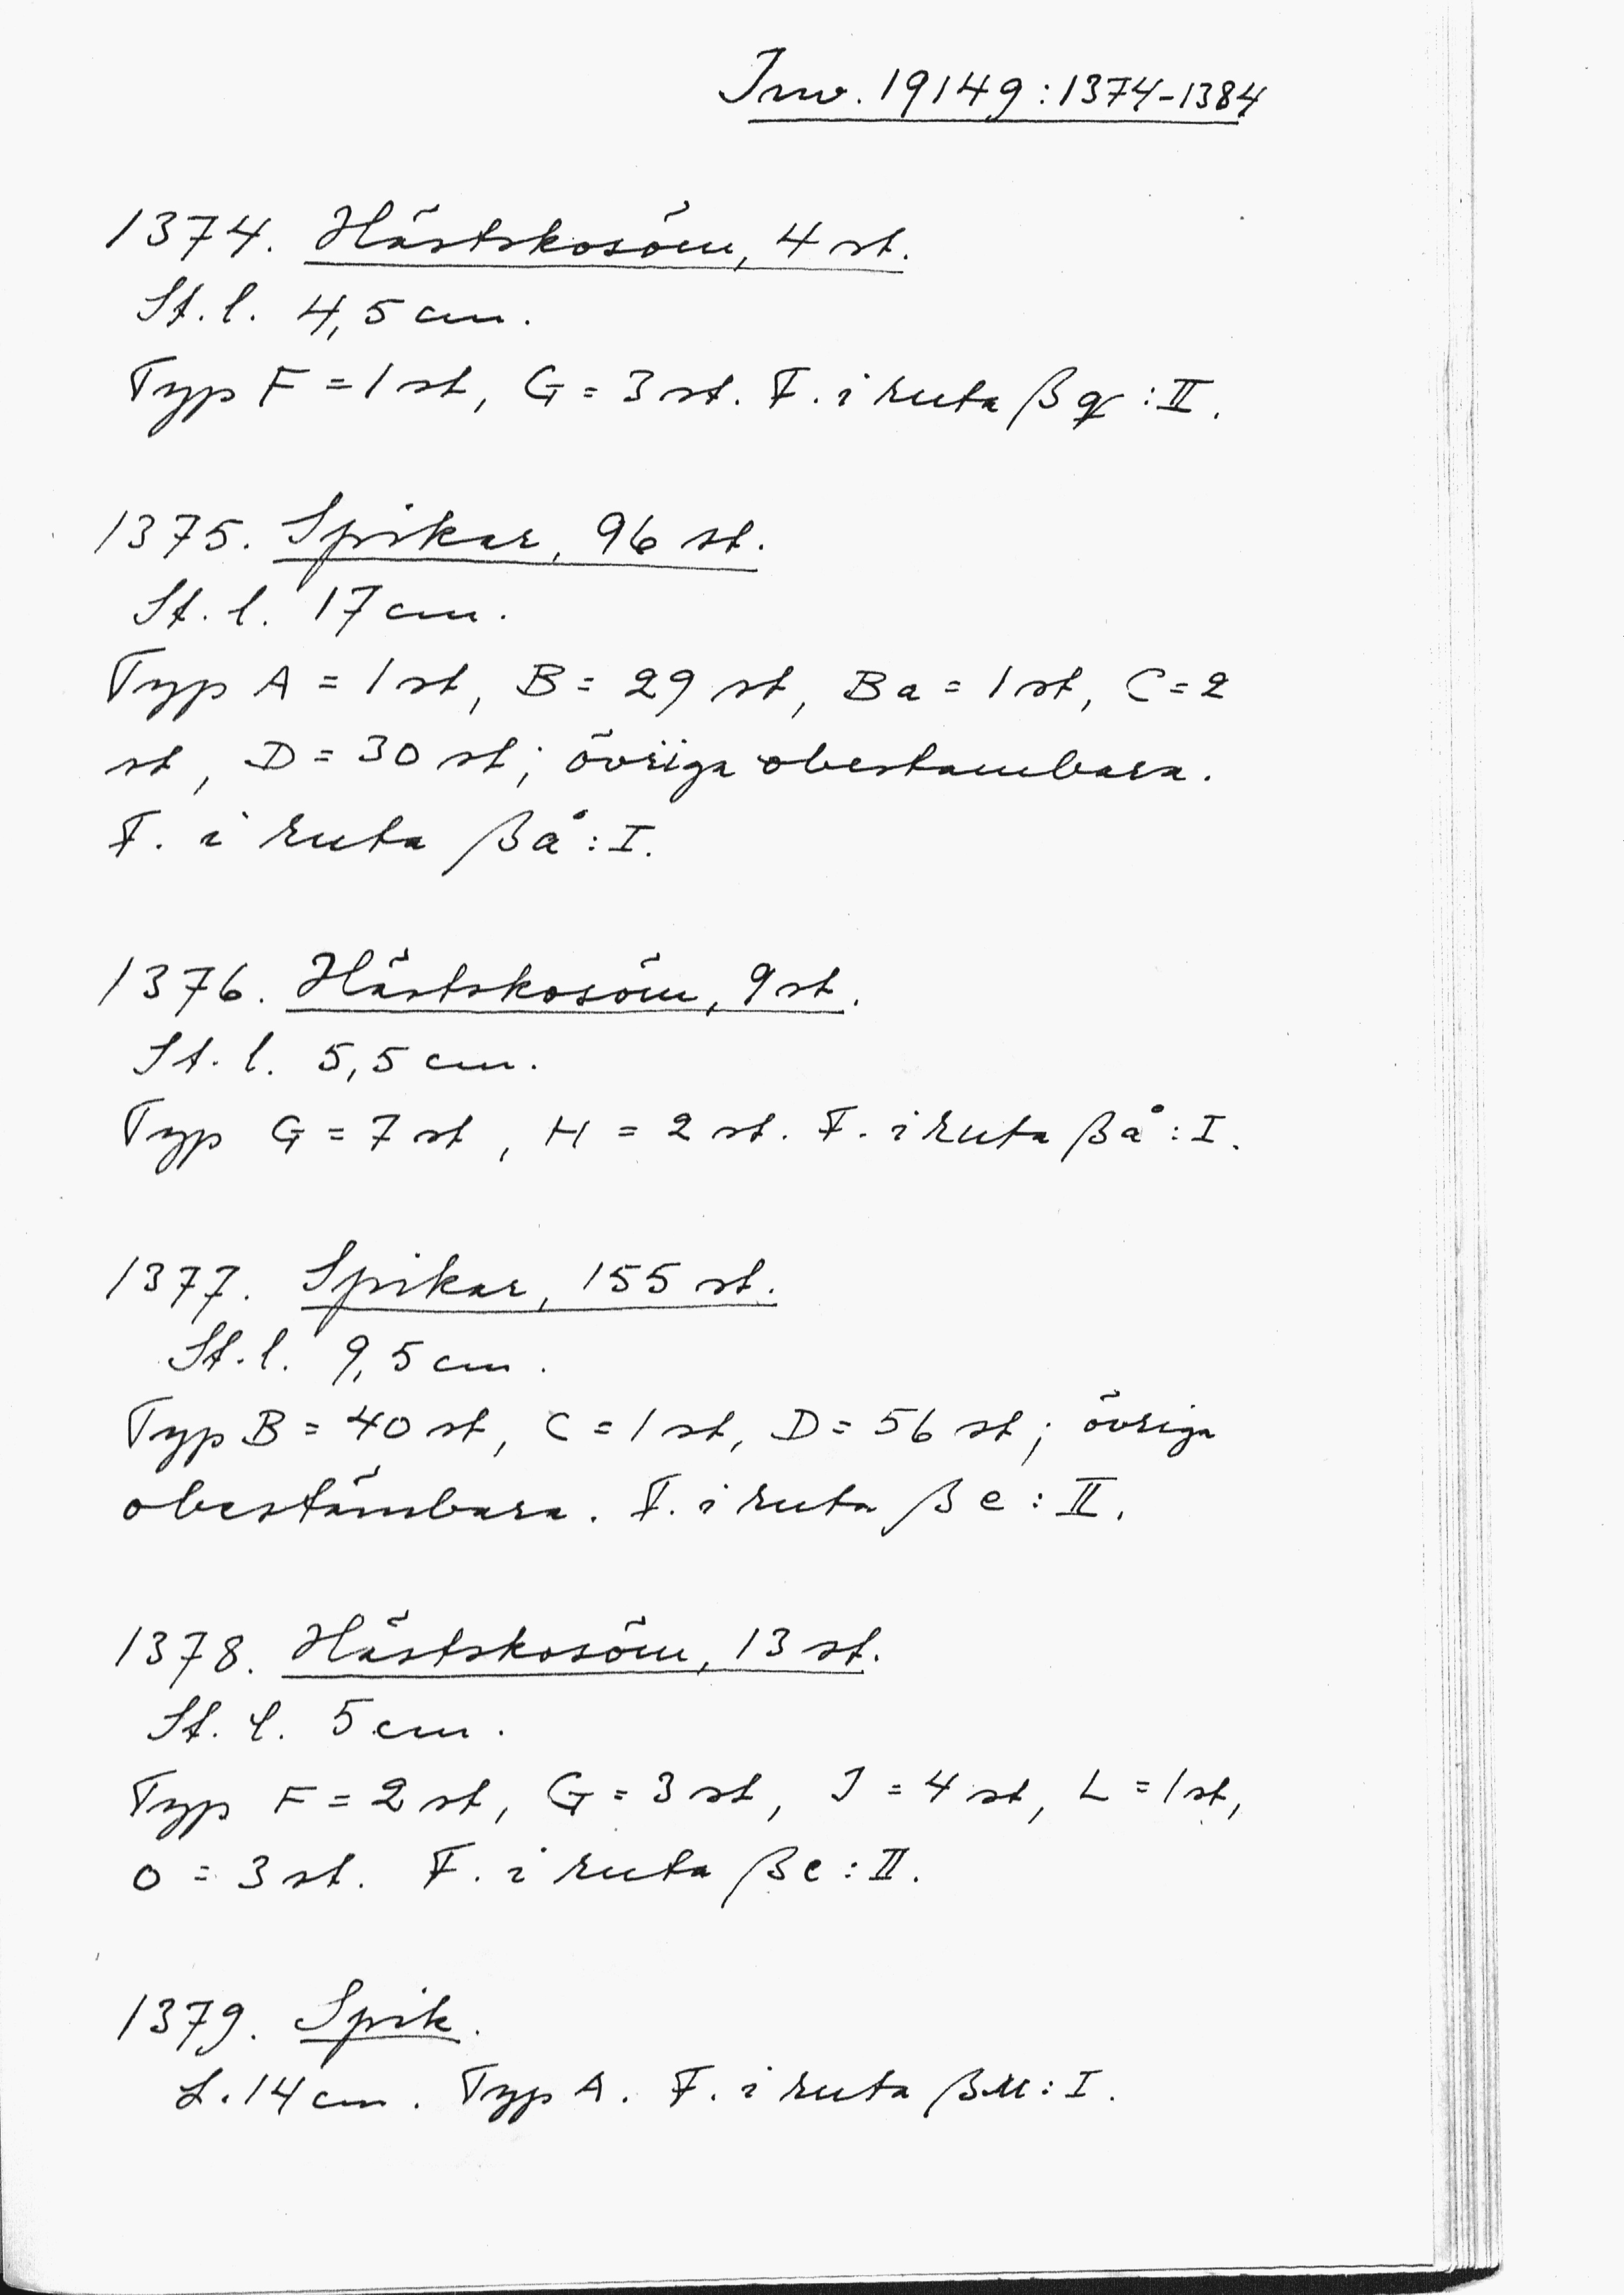 Inv. 19149:1374-1384
1374. Hästskosöm, 4 st.
St. l. 4,5 cm.
Typ F = 1 st, G = 3 st. F. i ruta βq:II.
1375. Spikar, 96 st.
St. l. 17 cm.
Typ A = 1 st, B = 29 st, Ba = 1 st, C = 2
st, D = 30 st; övriga obestambara.
F. i ruta βå:I.
1376. Hästskosöm, 9 st.
St. l. 5,5 cm.
Typ G = 7 st, H = 2 st. F. i ruta βå:I.
1377. Spikar, 155 st.
St. l. 9,5 cm.
Typ B = 40 st, C = 1 st, D = 56 st; övriga
obestämbara. F. i ruta βe:II.
1378. Hästskosöm, 13 st.
St. l. 5 cm.
Typ F = 2 st, G = 3 st, J = 4 st, L = 1 st,
O = 3 st. F. i ruta βe:II.
1379. Spik.
L. 14 cm. Typ A. F. i ruta :I.